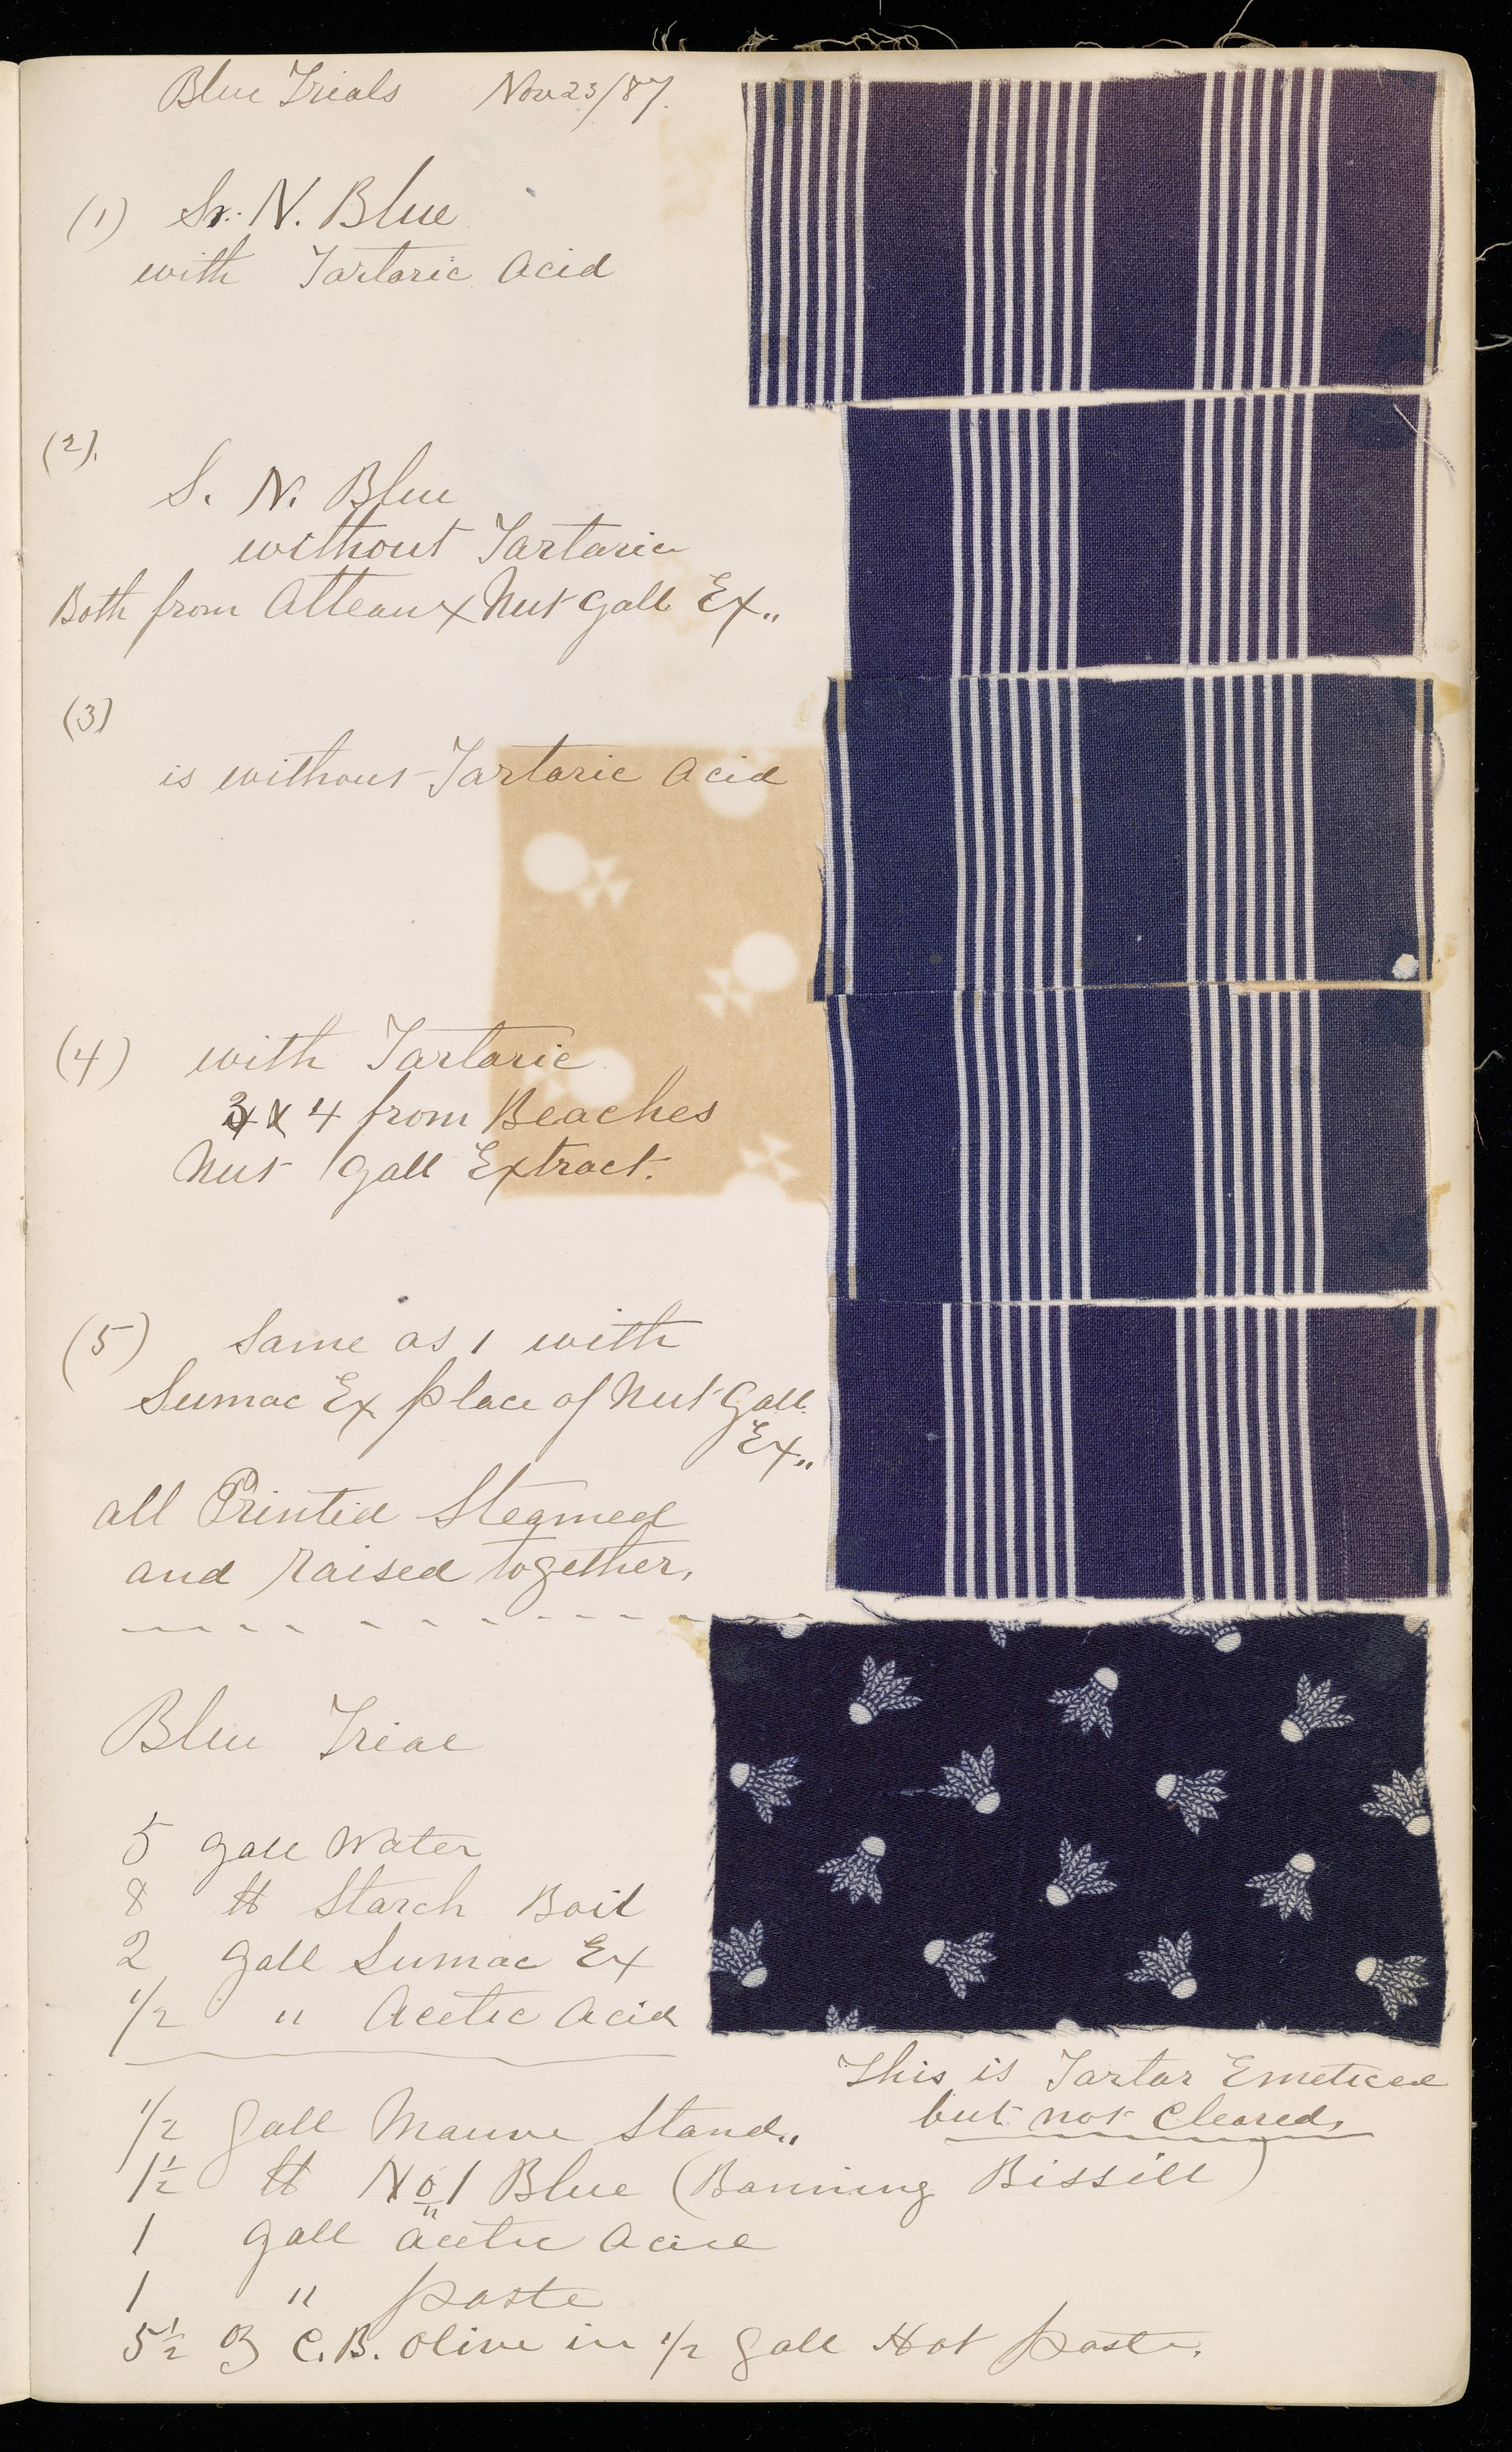 Blue Trials Nov 23/87.
(1) Sr. N. Blue
with Tartaric Acid
(2).
S. N. Blue
without Tartaric
Both from Atteaux Nut Gall Ex"
(3)
is without Tartaric Acid
(4) with Tartaric
3 & 4 from Beaches
Nut Gall Extract.
(5) Same as 1 with
Sumac Ex place of Nut Gall
Ex"
all Printed Steamed
and raised together,
Blue Trial
5 gall Water
8 ℔ Starch Boil
2 gall Sumac Ex
1/2 " Acetic Acid
This is Tartar Emeticed
but not Cleared,
1/2 gall Mauve Stand"
1 1/2 ℔ No 1 Blue (Banning Bissill)
1 gall acetic acid
1 " paste
5 1/2 oz C.B. Olive in 1/2 gall Hot paste.